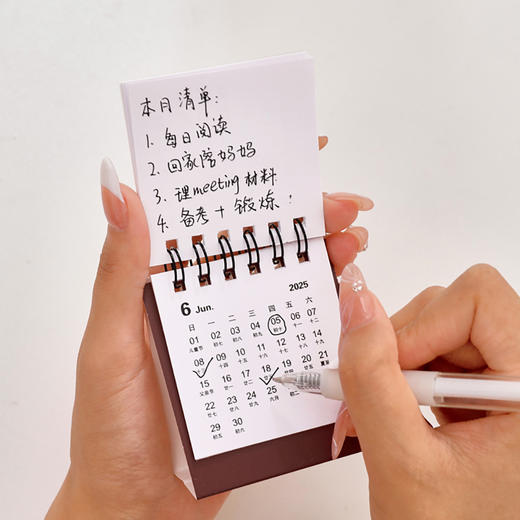 本月清单:
1. 每日阅读
2. 回家陪妈妈
3. 理meeting材料
4. 备考+锻炼!
6 Jun. 2025
日 一 二 三 四 五 六
01 02 03 04 05 06 07
儿童节 初七 初八 初九 初十 十一 十二
08 09 10 11 12 13 14
十四 十五 十六 十七 十八 十九
15 16 17 18 19 20 21
父亲节 廿一 廿二 夏至
22 23 24 25 26 27 28
廿七 廿八 廿九 六月 初二
29 30
初五 初六